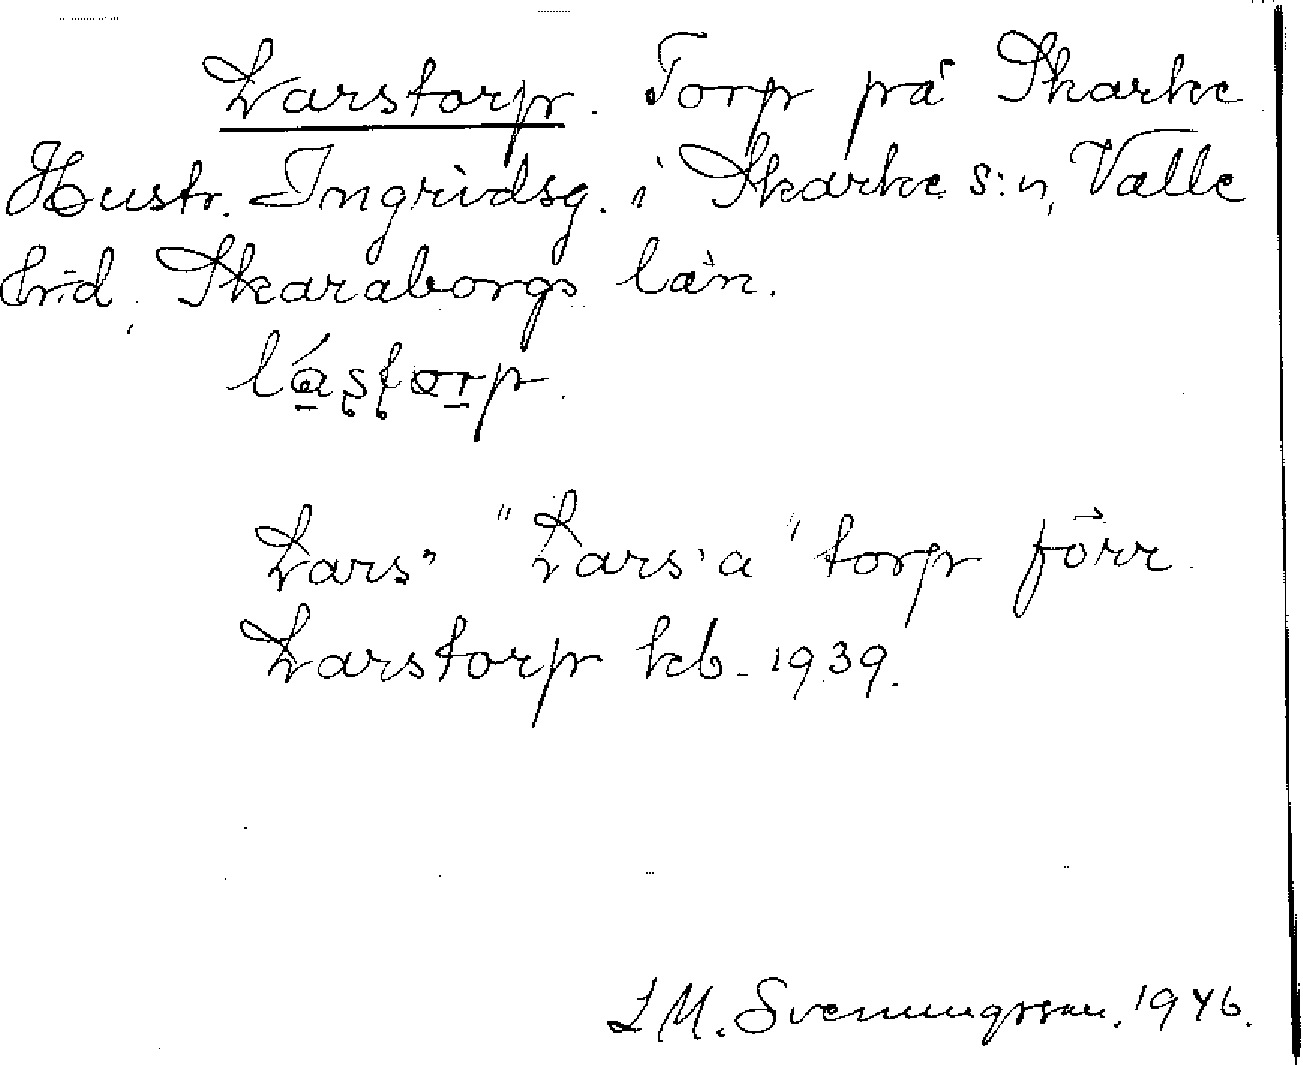 Larstorp. Torp på Skarke
Hustr. Ingridsg. i Skarke s:n, Valle
hrd, Skaraborgs län.
Lars' "Lars:a" torp förr
Larstorp kb. 1939.
I. M. Svenungsson. 1946.